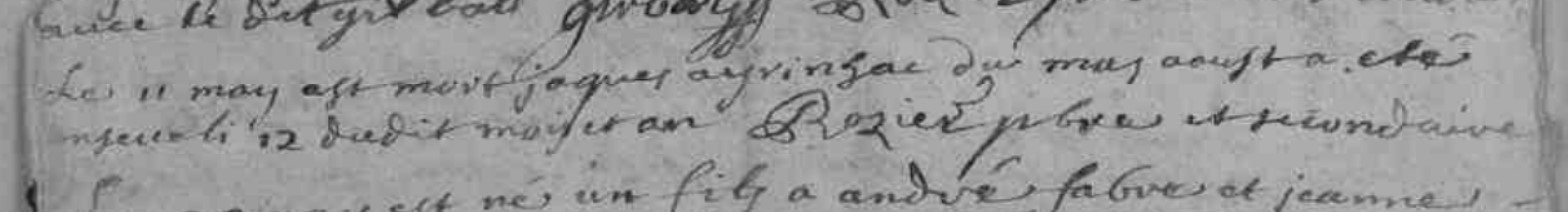 avec le
Le 11 may est mort jaques ayrinhac du mas aoust a eté
enseveli 12 dudit mois et an Rozier pbre et secondaire
est né un fils a andré fabre et jeanne